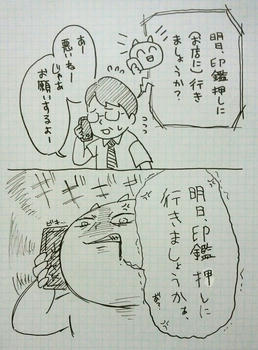 明日、印鑑押しに
(お店に)行き
ましょうか?
あー
悪いねー
じゃあ
お願いするよー
ピキ
明日、印鑑押しに
行きましょうかぁ、
あ?